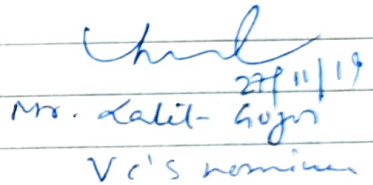 27/11/19
Mr. Lalit
VC'S nominee